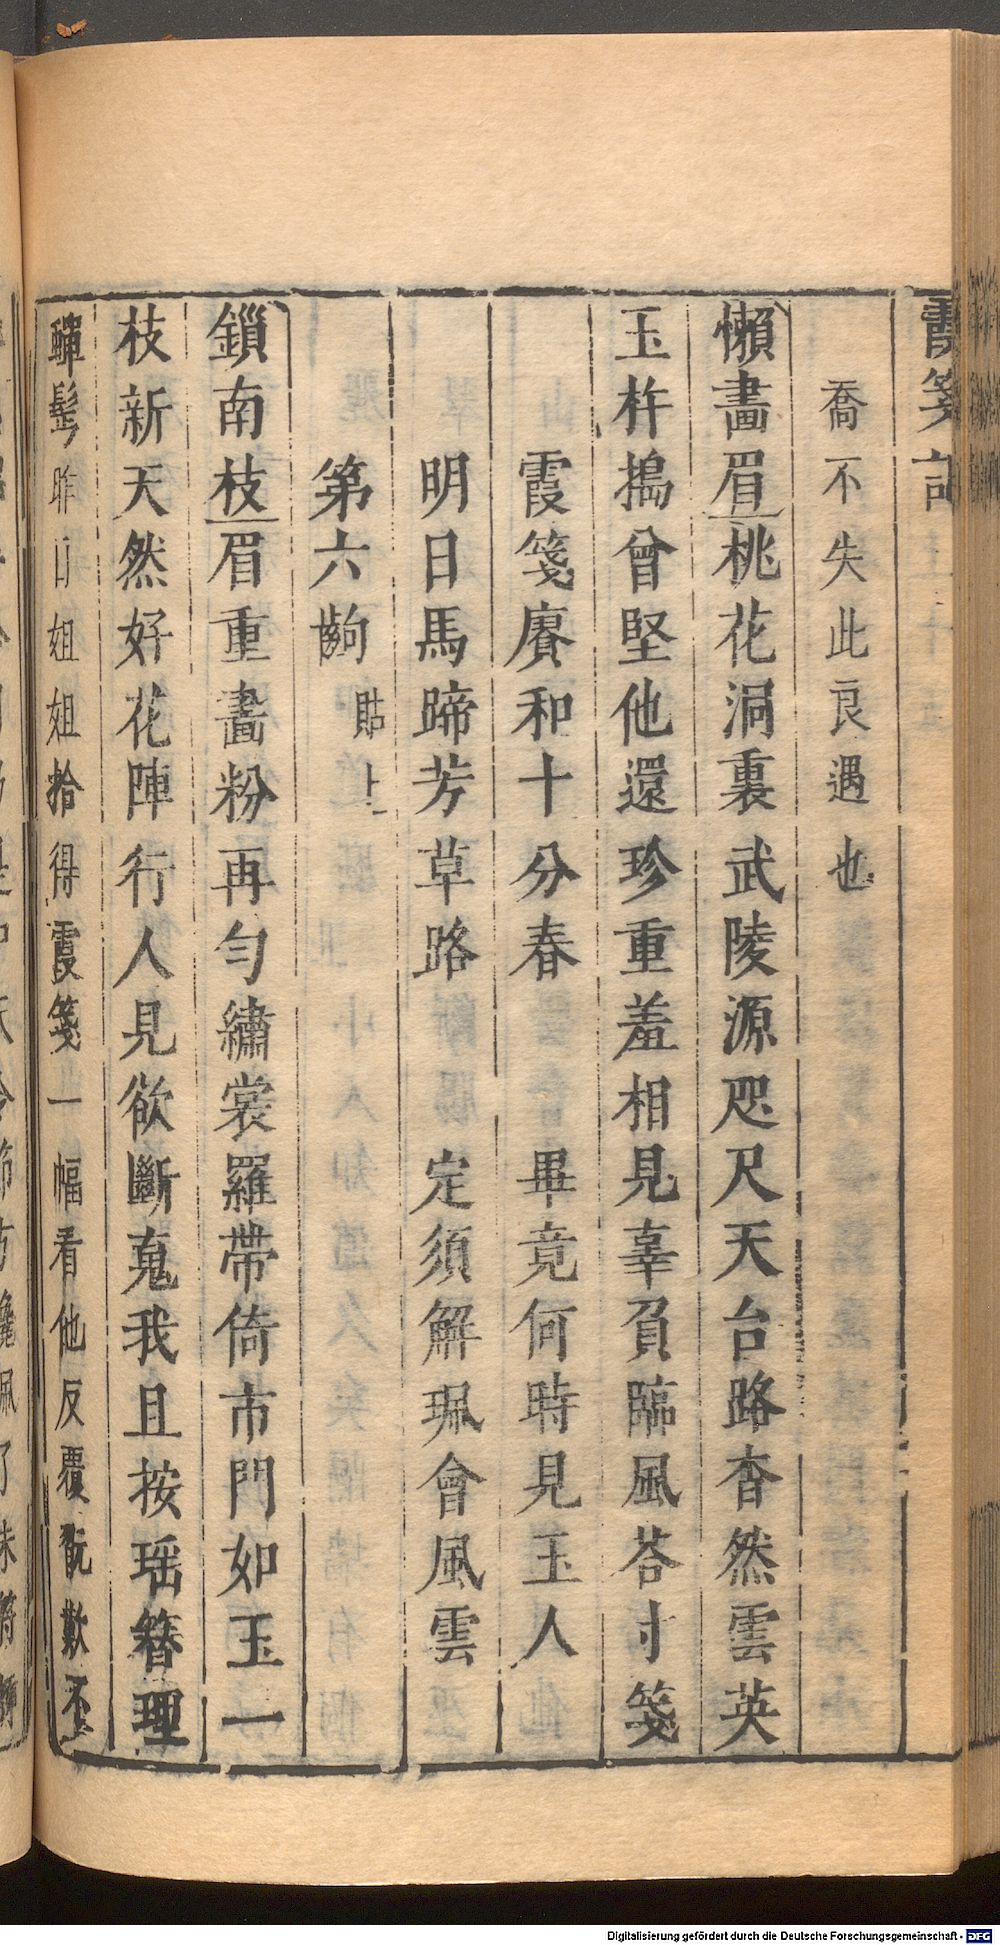 霞箋記
喬不失此良遇也
懶畵眉桃花洞裏武陵源咫尺天台路杳然雲英
玉杵搗曾堅他還珍重羞相見辜負臨風荅寸箋
霞箋賡和十分春　畢竟何時見玉人
明日馬蹄芳草路　定須解珮會風雲
第六齣　貼上
鎖南枝眉重畵粉再勻繡裳羅帶倚市門如玉一
枝新天然好花陣行人見欲斷䰟我且按瑶簪理
髩昨日姐姐拾得霞箋一幅看他反覆翫歎
Digitalisierung gefördert durch die Deutsche Forschungsgemeinschaft - DFG